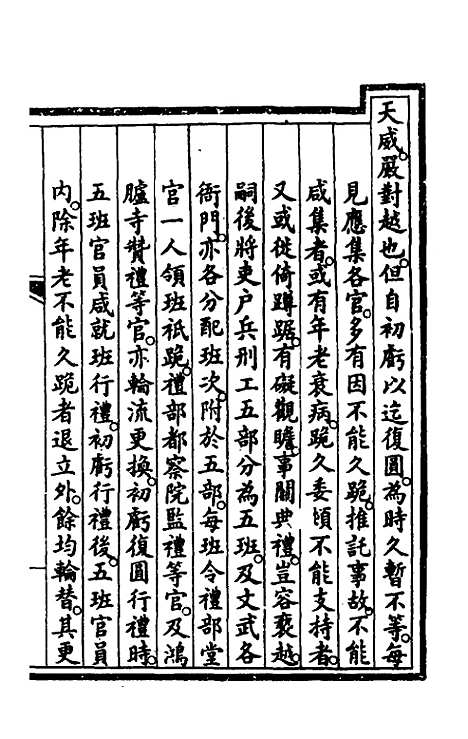 天威。嚴對越也。但自初虧以迄復圓。為時久暫不等。每
見應集各官。多有因不能久跪。推託事故。不能
咸集者。或有年老衰病。跪久委頓不能支持者。
又或徙倚蹲踞。有礙觀瞻。事關典禮。豈容褻越。
嗣後將吏户兵刑工五部分為五班。及文武各
衙門。亦各分配班次。附於五部。每班令禮部堂
官一人領班祇跪。禮部都察院監禮等官。及鴻
臚寺贊禮等官。亦輪流更換。初虧復圓行禮時。
五班官員咸就班行禮。初虧行禮後。五班官員
內。除年老不能久跪者退立外。餘均輪替。其更